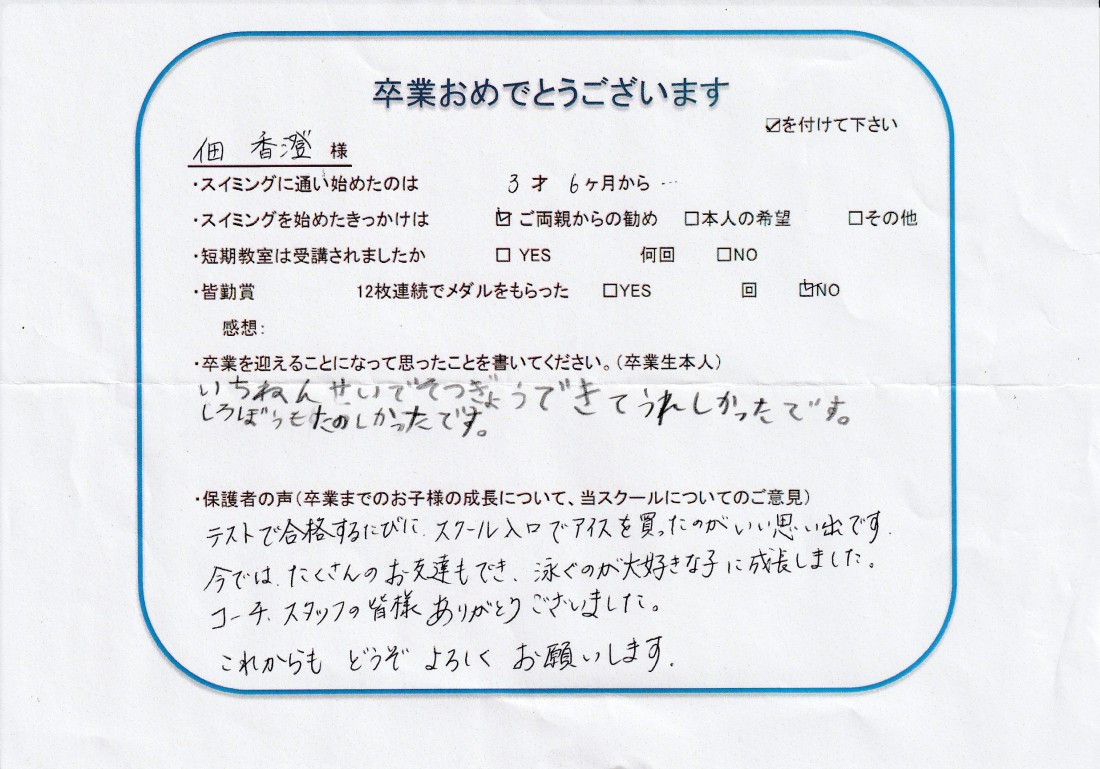 卒業おめでとうございます
☑を付けて下さい
佃 香澄 様
・スイミングに通い始めたのは 3才 6ヶ月から…
・スイミングを始めたきっかけは ☑ご両親からの勧め □本人の希望 □その他
・短期教室は受講されましたか □YES 何回 □NO
・皆勤賞 12枚連続でメダルをもらった □YES 回 ☑NO
感想:
・卒業を迎えることになって思ったことを書いてください。(卒業生本人)
いちねんせいでそつぎょうできてうれしかったです。
しろぼうもたのしかったです。
・保護者の声(卒業までのお子様の成長について、当スクールについてのご意見)
テストで合格するたびに、スクール入口でアイスを買ったのがいい思い出です。
今では、たくさんのお友達もでき、泳ぐのが大好きな子に成長しました。
コーチ、スタッフの皆様ありがとうございました。
これからも どうぞ よろしく お願いします。